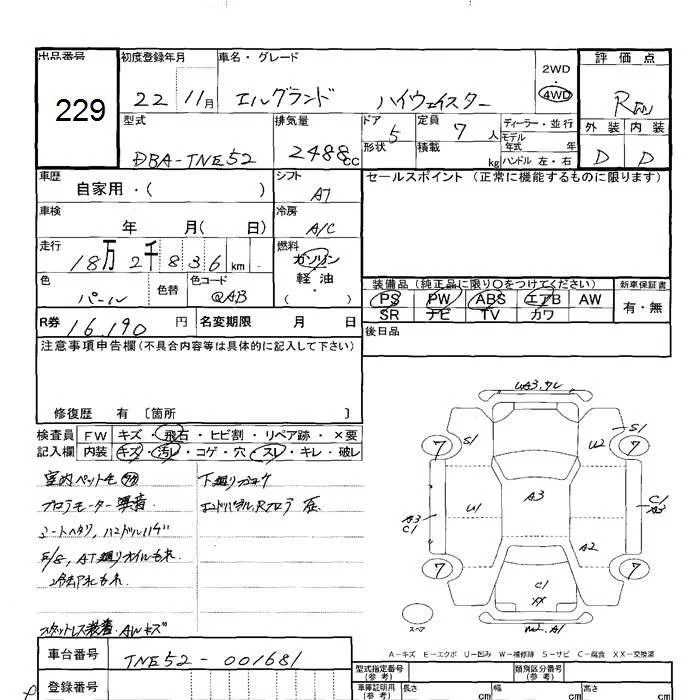 出品番号 初度登録年月 車名・グレード 評価点
229
22 11月 エルグランド ハイウェイスター 2WD 4WD R
型式 排気量 ドア 定員 ディーラー・並行 外装 内装
DBA-TNE52 2488cc 5 7人 モデル年式 年 D D
形状 積載 kg ハンドル 左・右
車歴 シフト セールスポイント (正常に機能するものに限ります)
自家用・( ) AT
車検 冷房
年 月( 日) A/C
走行 燃料
18万2千836km ガソリン
軽油
( )
色 色替 色コード
パール QAB
装備品 (純正品に限り○をつけてください) 新車保証書
PS PW ABS エアB AW 有・無
SR ナビ TV カワ
R券 16,190円 名変期限 月 日
後日品
注意事項申告欄(不具合内容等は具体的に記入して下さい)
修復歴 有 〔箇所 〕
検査員 FW キズ・飛石・ヒビ割・リペア跡・×要
記入欄 内装 キズ・汚レ・コゲ・穴・スレ・キレ・破レ
室内ペット毛 下廻りサビ
シートヘタリ, ハンドルハゲ
E/G, AT廻りオイルもれ
冷却水もれ
スタットレス装着. AWキズ
車台番号 TNE52-001681
登録番号
UA3.サレ
7 S1 U2 S1 7
A3 C1 U1 A3 C1 A3
A2
7 C1 XX 7
スペア A1
A-キズ E-エクボ U-凹み W-補修跡 S-サビ C-腐食 XX-交換済
型式指定番号 類別区分番号
車庫証明用(参考) 長さ cm 幅 cm 高さ cm